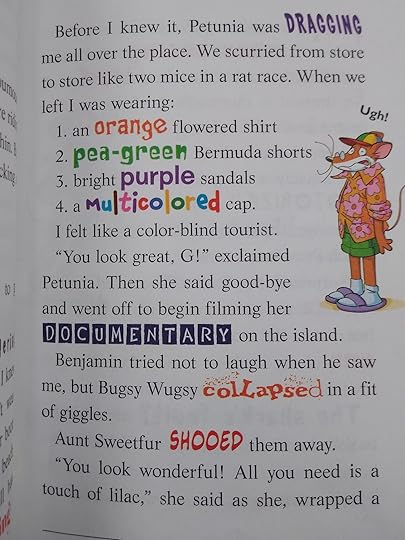 Before I knew it, Petunia was DRAGGING
me all over the place. We scurried from store
to store like two mice in a rat race. When we
left I was wearing:
1. an orange flowered shirt
2. pea-green Bermuda shorts
3. bright purple sandals
4. a multicolored cap.
Ugh!
I felt like a color-blind tourist.
"You look great, G!" exclaimed
Petunia. Then she said good-bye
and went off to begin filming her
DOCUMENTARY on the island.
Benjamin tried not to laugh when he saw
me, but Bugsy Wugsy collapsed in a fit
of giggles.
Aunt Sweetfur SHOOED them away.
"You look wonderful! All you need is a
touch of lilac," she said as she, wrapped a